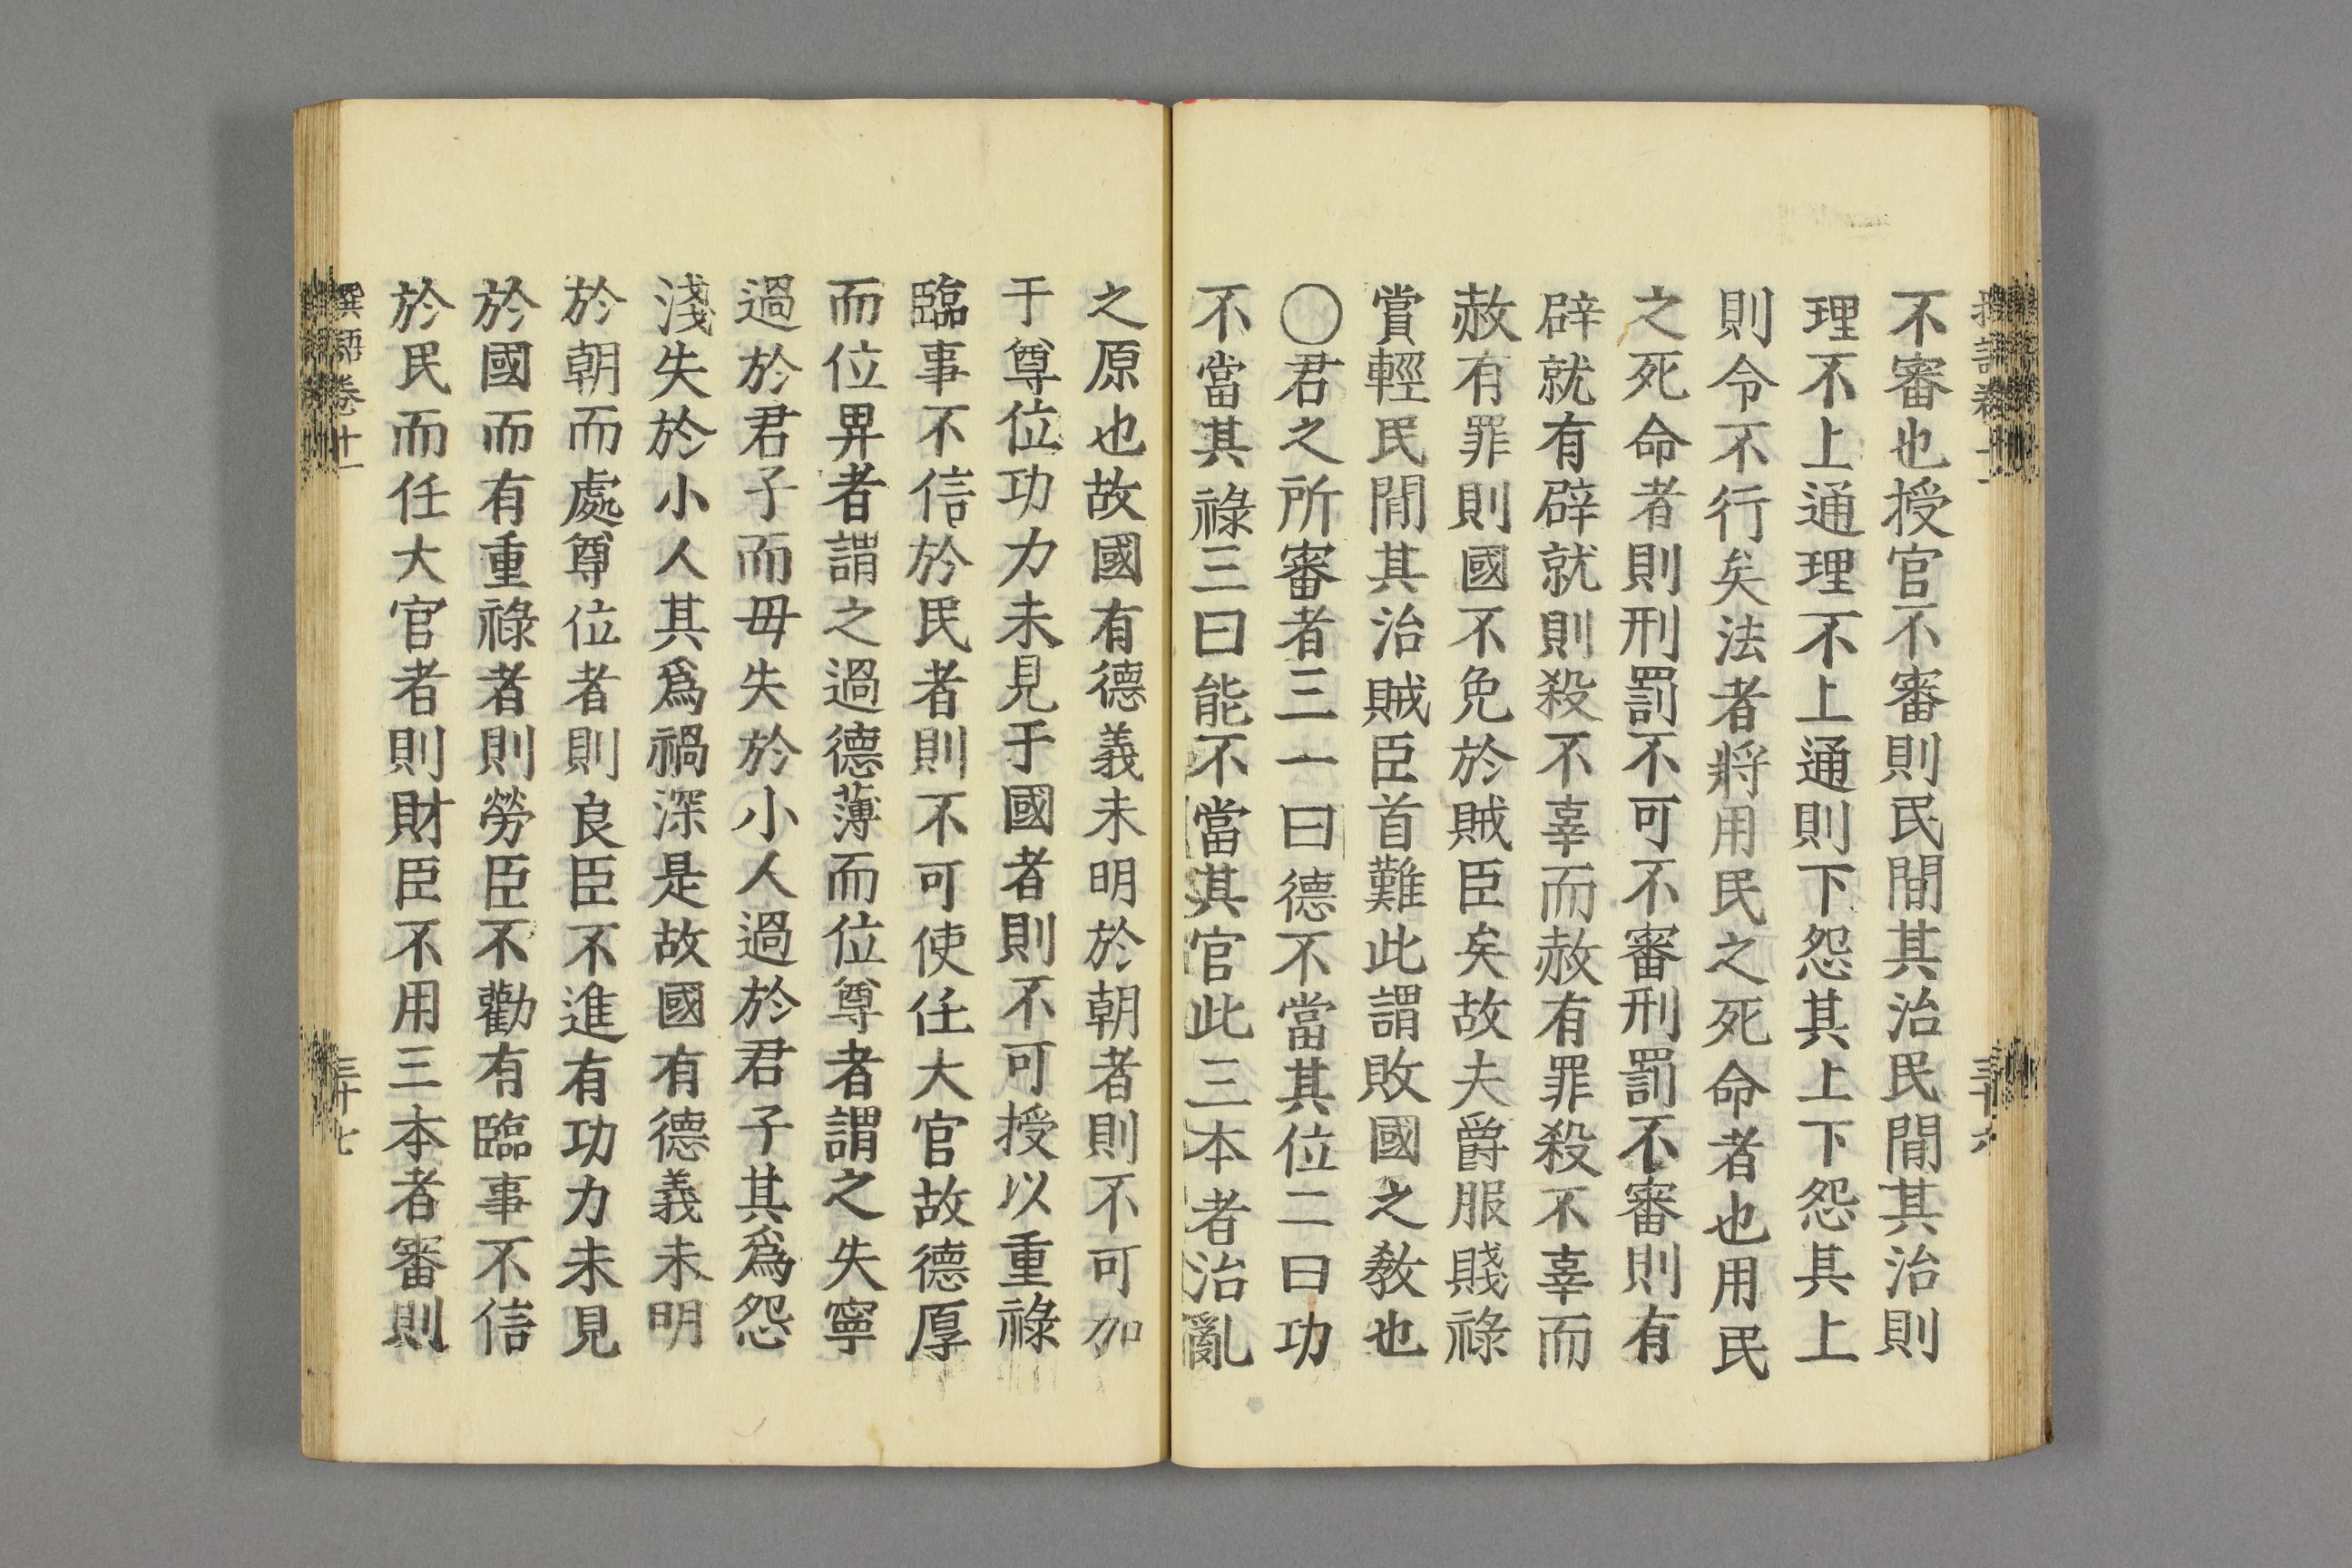 不審也授官不審則民間其治民間其治則
理不上通理不上通則下怨其上下怨其上
則令不行矣法者將用民之死命者也用民
之死命者則刑罰不可不審刑罰不審則有
辟就有辟就則殺不辜而赦有罪殺不辜而
赦有罪則國不免於賊臣矣故夫爵服賤祿
賞輕民間其治賊臣首難此謂敗國之教也
〇君之所審者三一曰德不當其位二曰功
不當其祿三曰能不當其官此三本者治亂
之原也故國有德義未明於朝者則不可加
于尊位功力未見于國者則不可授以重祿
臨事不信於民者則不可使任大官故德厚
而位畀者謂之過德薄而位尊者謂之失寧
過於君子而毋失於小人過於君子其爲怨
淺失於小人其爲禍深是故國有德義未明
於朝而處尊位者則良臣不進有功力未見
於國而有重祿者則勞臣不勸有臨事不信
於民而任大官者則財臣不用三本者審則
撰語卷十一
三十七